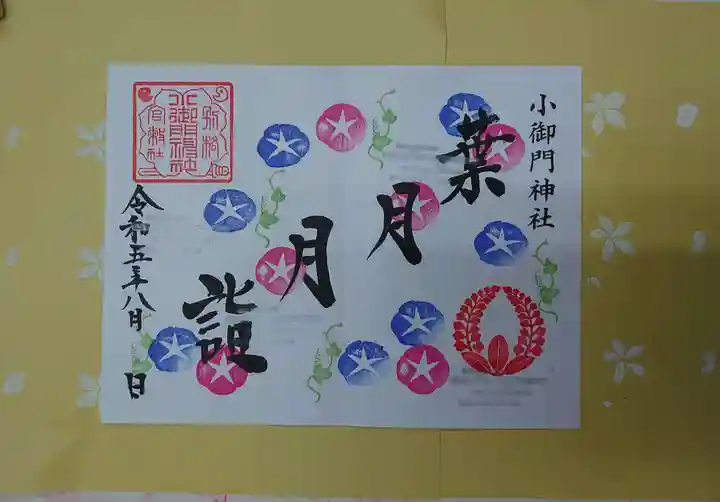 小御門神社
葉
月
月
詣
令和五年八月 日
別格
小御門神社
官幣社